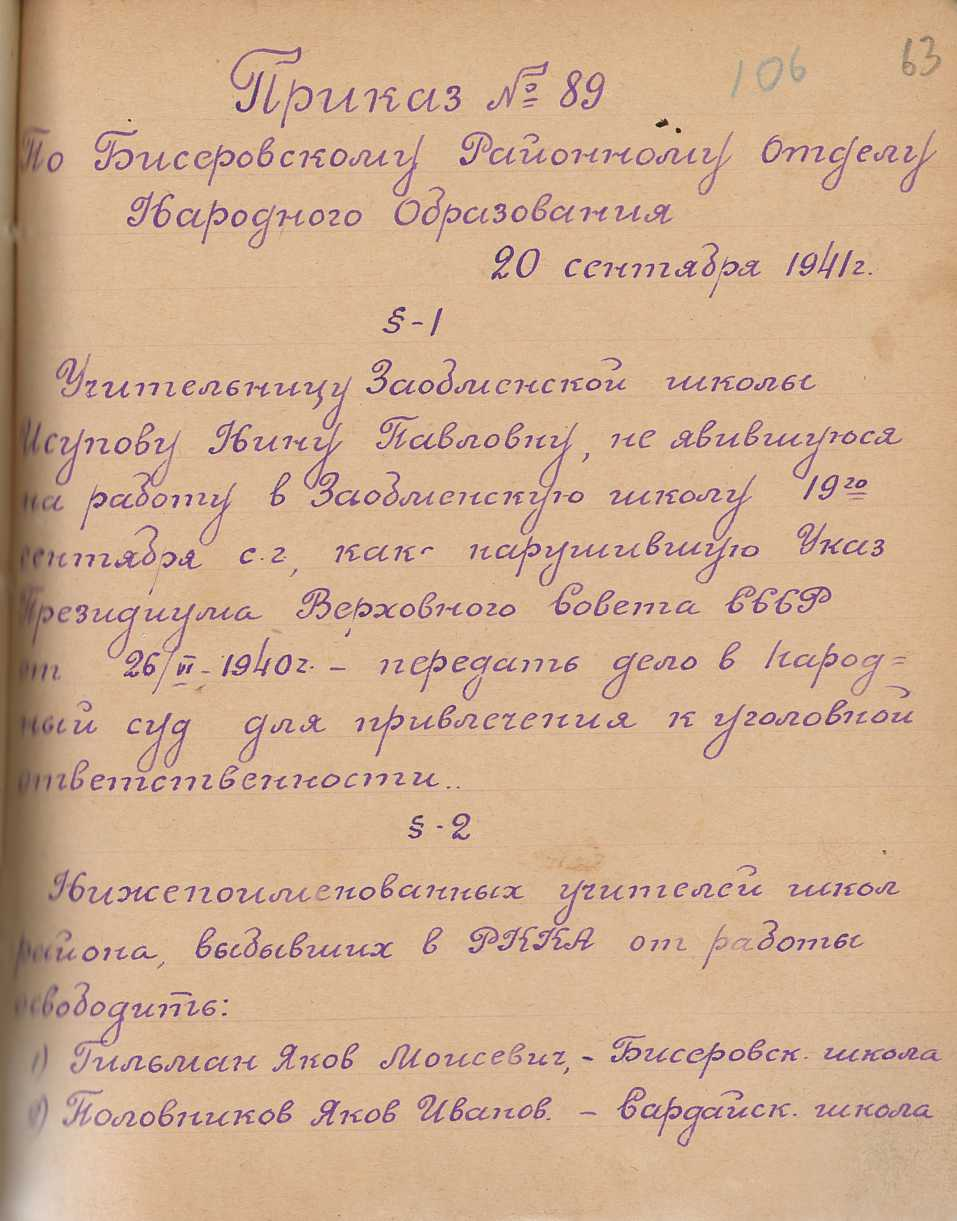 106 63
Приказ № 89
По Бисеровскому Районному Отделу
Народного Образования
20 сентября 1941 г.
§-1
Учительницу Заобменской школы
Исупову Нину Павловну, не явившуюся
на работу в Заобменскую школу 19го
сентября с.г, как нарушившую Указ
Президиума Верховного Совета СССР
от 26/VI-1940 г. – передать дело в Народ=
ный суд для привлечения к уголовной
ответственности..
§-2
Нижепоименованных учителей школ
района, выбывших в РККА от работы
освободить:
1) Гильман Яков Моисевич, – Бисеровск. школа
2) Половников Яков Иванов. – Сардайск. школа